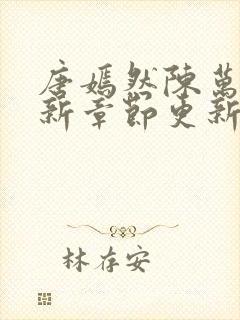 唐嫣然陳萬
新章節更新
林存安